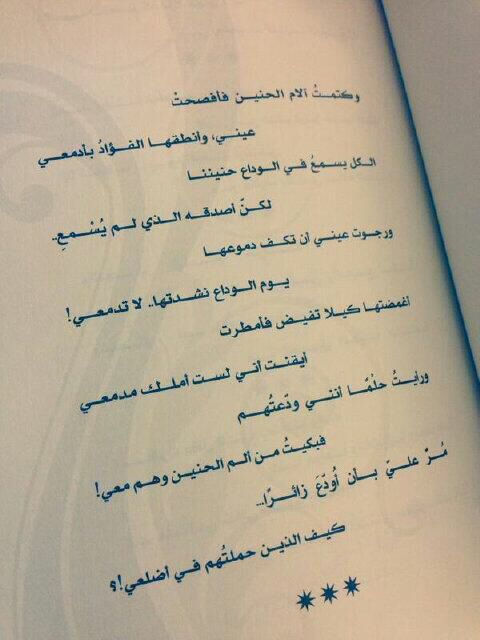 وكتمتُ آلام الحنين فأفصحتْ
عيني، وأنطقها الفؤادُ بأدمعي
الكل يسمعُ في الوداع حنيننا
لكنّ أصدقه الذي لم يُسْمعِ..
ورجوت عيني أن تكف دموعها
يوم الوداع نشدتها.. لا تدمعي!
أغمضتها كيلا تفيض فأمطرت
أيقنت أني لست أملك مدمعي
ورأيتُ حلْمًا أنني ودّعتُهم
فبكيتُ من ألم الحنين وهم معي!
مُرٌّ عليّ بأن أُودّعَ زائرًا...
كيف الذين حملتُهم في أضلعي!؟